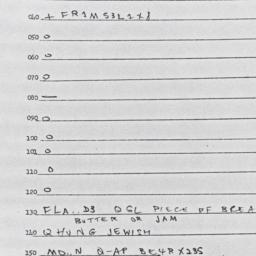 060 + FR1M53L1X8
050 0
060 0
070 0
080 —
090 0
100 0
100 0
110 0
120 0
130 FLA..D3 OSL PIECE PF BREA
BUTTER OR JAM
140 Q HUNG JEWISH
150 MD..N Q-AP BE4R X235